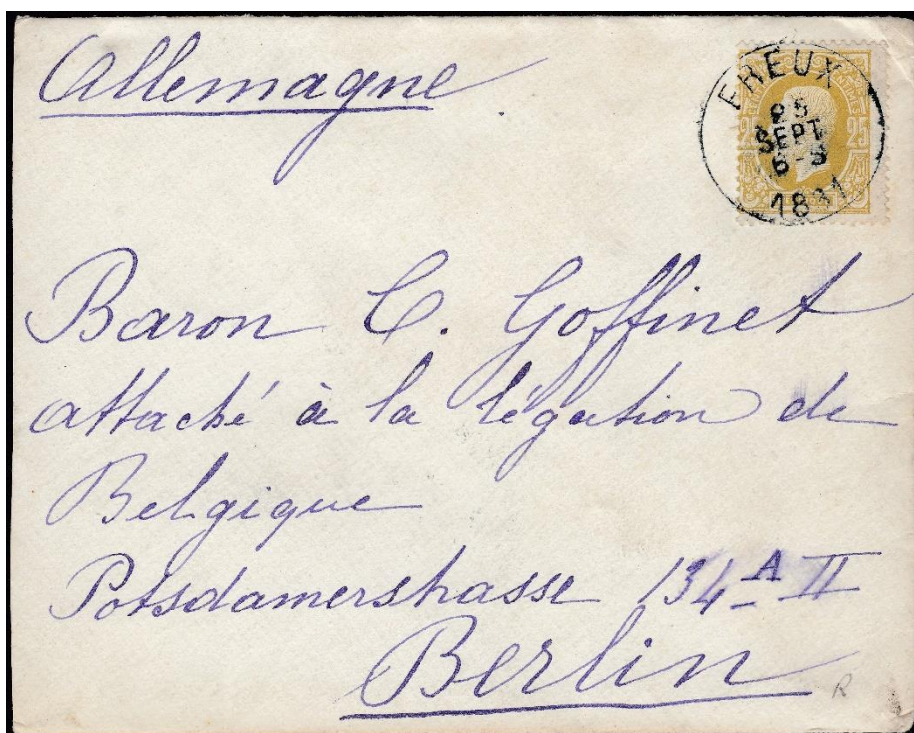 Allemagne
EREUX
25
SEPT
1881
25 25
Baron C. Goffinet
attaché à la légation de
Belgique
Potsdamerstrasse 134 A II
Berlin
R